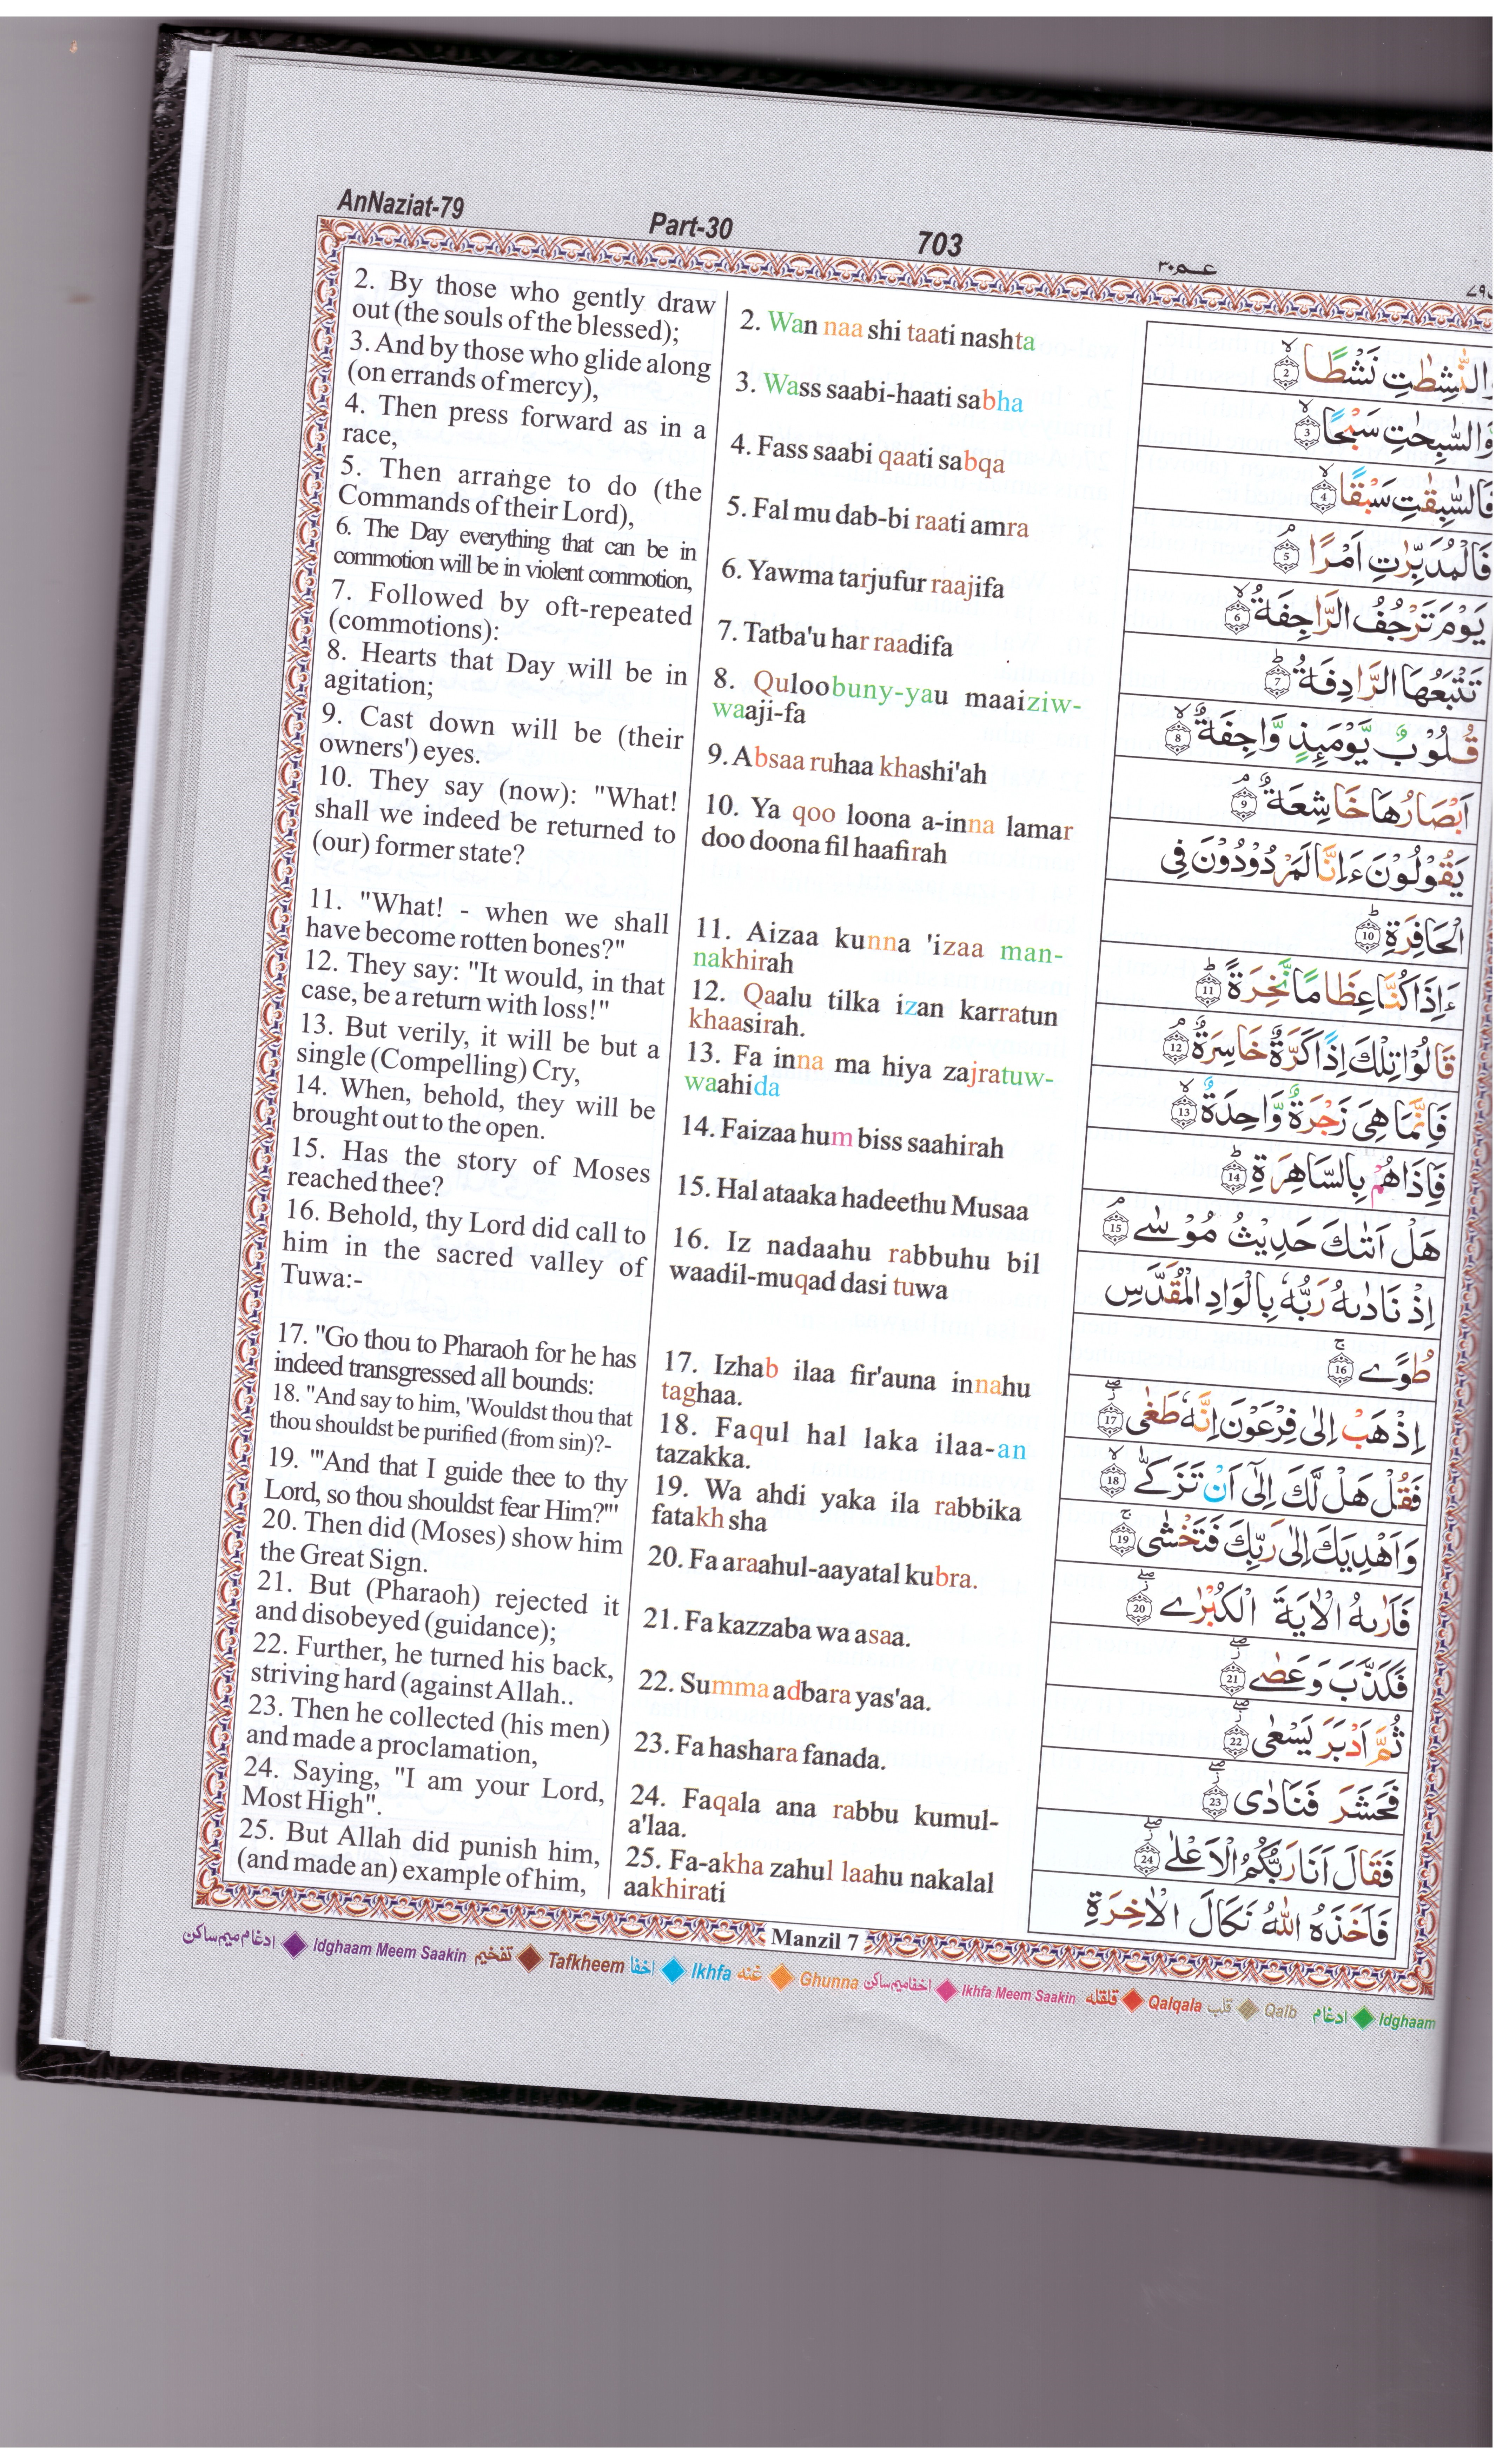 AnNaziat-79 Part-30 703 عـم٣٠
2. By those who gently draw
out (the souls of the blessed);
3. And by those who glide along
(on errands of mercy),
4. Then press forward as in a
race,
5. Then arrange to do (the
Commands of their Lord),
6. The Day everything that can be in
commotion will be in violent commotion,
7. Followed by oft-repeated
(commotions):
8. Hearts that Day will be in
agitation;
9. Cast down will be (their
owners') eyes.
10. They say (now): "What!
shall we indeed be returned to
(our) former state?
11. "What! - when we shall
have become rotten bones?"
12. They say: "It would, in that
case, be a return with loss!"
13. But verily, it will be but a
single (Compelling) Cry,
14. When, behold, they will be
brought out to the open.
15. Has the story of Moses
reached thee?
16. Behold, thy Lord did call to
him in the sacred valley of
Tuwa:-
17. "Go thou to Pharaoh for he has
indeed transgressed all bounds:
18. "And say to him, 'Wouldst thou that
thou shouldst be purified (from sin)?-
19. "'And that I guide thee to thy
Lord, so thou shouldst fear Him?'"
20. Then did (Moses) show him
the Great Sign.
21. But (Pharaoh) rejected it
and disobeyed (guidance);
22. Further, he turned his back,
striving hard (against Allah..
23. Then he collected (his men)
and made a proclamation,
24. Saying, "I am your Lord,
Most High".
25. But Allah did punish him,
(and made an) example of him,
2. Wan naa shi taati nashta
3. Wass saabi-haati sabha
4. Fass saabi qaati sabqa
5. Fal mu dab-bi raati amra
6. Yawma tarjufur raajifa
7. Tatba'u har raadifa
8. Quloobuny-yau maaiziw-
waaji-fa
9. Absaa ruhaa khashi'ah
10. Ya qoo loona a-inna lamar
doo doona fil haafirah
11. Aizaa kunna 'izaa man-
nakhirah
12. Qaalu tilka izan karratun
khaasirah.
13. Fa inna ma hiya zajratuw-
waahida
14. Faizaa hum biss saahirah
15. Hal ataaka hadeethu Musaa
16. Iz nadaahu rabbuhu bil
waadil-muqad dasi tuwa
17. Izhab ilaa fir'auna innahu
taghaa.
18. Faqul hal laka ilaa-an
tazakka.
19. Wa ahdi yaka ila rabbika
fatakh sha
20. Fa araahul-aayatal kubra.
21. Fa kazzaba wa asaa.
22. Summa adbara yas'aa.
23. Fa hashara fanada.
24. Faqala ana rabbu kumul-
a'laa.
25. Fa-akha zahul laahu nakalal
aakhirati
وَّالنّٰشِطٰتِ نَشْطًا ۙ 2
وَّالسّٰبِحٰتِ سَبْحًا ۙ 3
فَالسّٰبِقٰتِ سَبْقًا ۙ 4
فَالْمُدَبِّرٰتِ اَمْرًا ۘ 5
يَوْمَ تَرْجُفُ الرَّاجِفَةُ ۙ 6
تَتْبَعُهَا الرَّادِفَةُ ؕ 7
قُلُوْبٌ يَّوْمَئِذٍ وَّاجِفَةٌ ۙ 8
اَبْصَارُهَا خَاشِعَةٌ ۘ 9
يَقُوْلُوْنَ ءَاِنَّا لَمَرْدُوْدُوْنَ فِى
الْحَافِرَةِ ؕ 10
ءَاِذَا كُنَّا عِظَامًا نَّخِرَةً ؕ 11
قَالُوْا تِلْكَ اِذًا كَرَّةٌ خَاسِرَةٌ ۘ 12
فَاِنَّمَا هِىَ زَجْرَةٌ وَّاحِدَةٌ ۙ 13
فَاِذَا هُمْ بِالسَّاهِرَةِ ؕ 14
هَلْ اَتٰىكَ حَدِيْثُ مُوْسٰى ۘ 15
اِذْ نَادٰىهُ رَبُّهٗ بِالْوَادِ الْمُقَدَّسِ
طُوًى ۚ 16
اِذْهَبْ اِلٰى فِرْعَوْنَ اِنَّهٗ طَغٰى ۖ 17
فَقُلْ هَلْ لَّكَ اِلٰٓى اَنْ تَزَكّٰى ۙ 18
وَاَهْدِيَكَ اِلٰى رَبِّكَ فَتَخْشٰى ۚ 19
فَاَرٰىهُ الْاٰيَةَ الْكُبْرٰى ۖ 20
فَكَذَّبَ وَعَصٰى ۖ 21
ثُمَّ اَدْبَرَ يَسْعٰى ۖ 22
فَحَشَرَ فَنَادٰى ۖ 23
فَقَالَ اَنَا رَبُّكُمُ الْاَعْلٰى ۖ 24
فَاَخَذَهُ اللّٰهُ نَكَالَ الْاٰخِرَةِ
Manzil 7
ادغام میم ساکن Idghaam Meem Saakin تفخیم Tafkheem اخفا Ikhfa غنه Ghunna اخفا میم ساکن Ikhfa Meem Saakin قلقله Qalqala قلب Qalb ادغام Idghaam